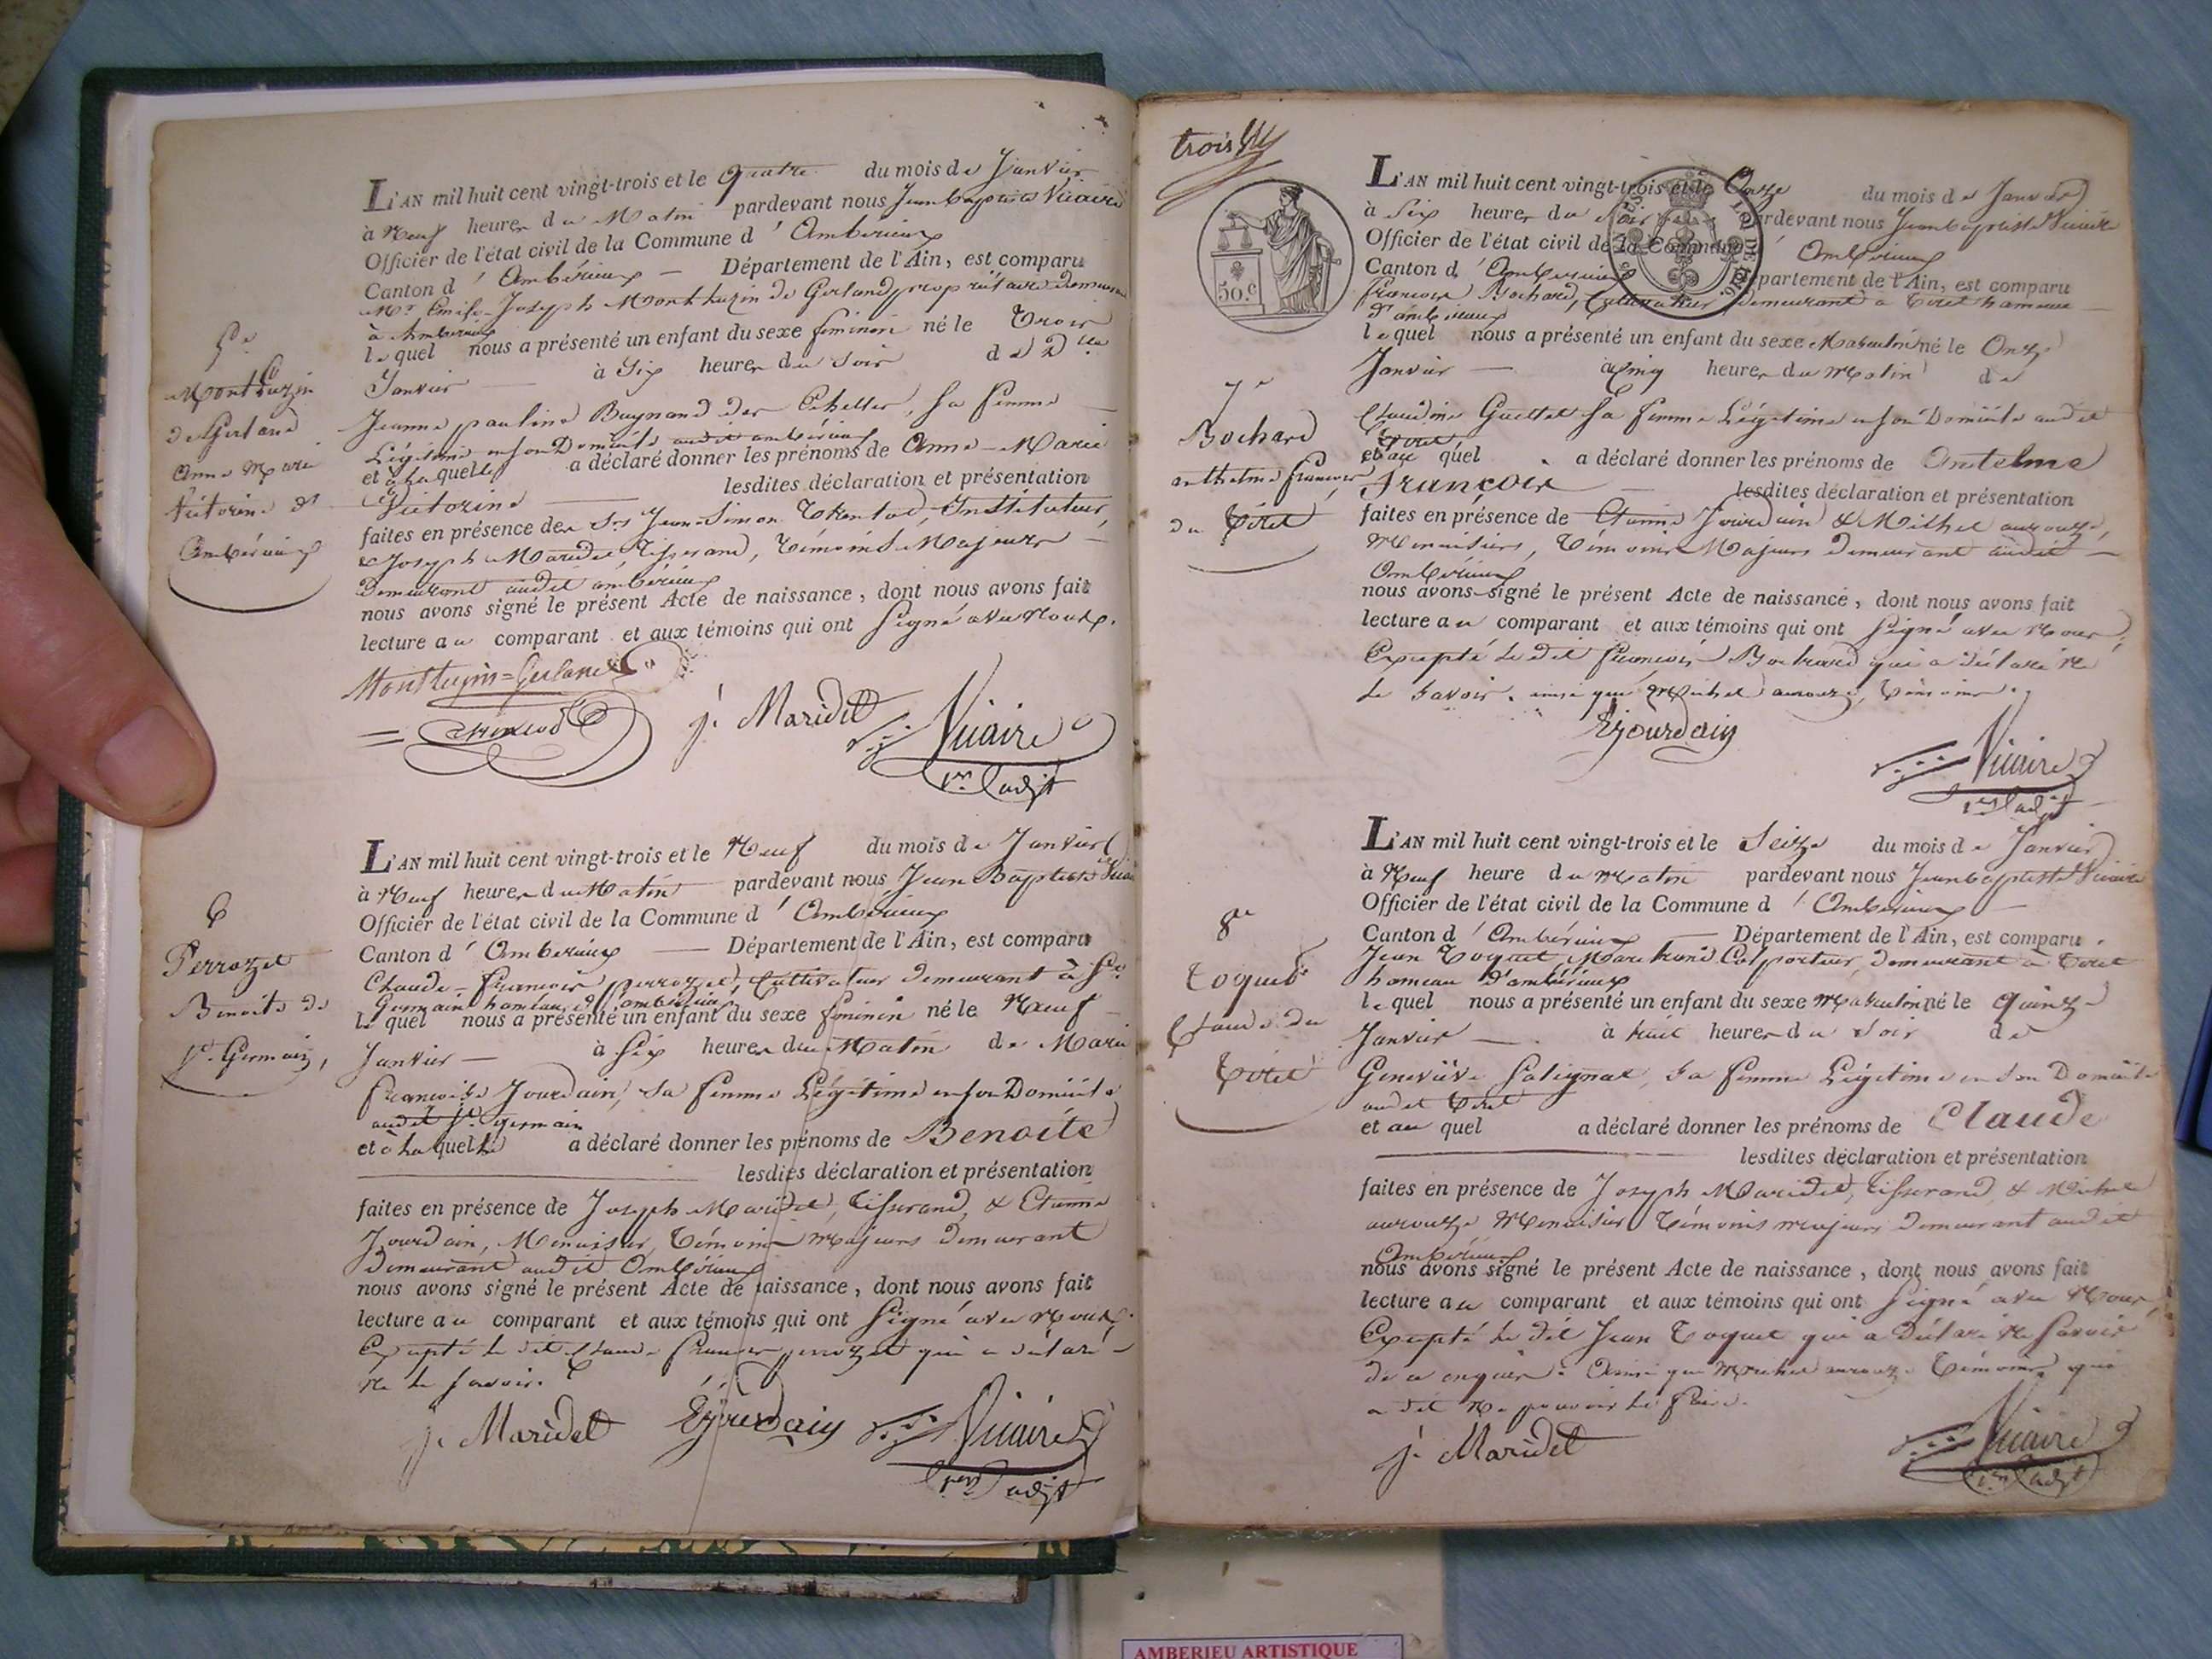 5e
Montluzin
de Gerland
Anne Marie
Victorine d'
Ambérieux
L'AN mil huit cent vingt-trois et le quatre du mois de Janvier
à Neuf heures du Matin pardevant nous Jean baptiste Vicaire
Officier de l'état civil de la Commune d'Ambérieux
Canton d'Ambérieux — Département de l'Ain, est comparu
Mr Joseph Montluzin de Gerland, propriétaire demeurant
à Ambérieux
lequel nous a présenté un enfant du sexe féminin né le Trois
Janvier — à Six heures du soir de
Jeanne pauline Buynand des Echelles, sa femme
Légitime en son Domicile audit ambérieux
et à laquelle a déclaré donner les prénoms de Anne-Marie
Victorine — lesdites déclaration et présentation
faites en présence des Srs Jean-Simon Instituteur,
& Joseph Maridet Tisserand, Témoins Majeurs —
Demeurant audit ambérieux
nous avons signé le présent Acte de naissance, dont nous avons fait
lecture au comparant et aux témoins qui ont Signé avec Nous.
Montluzin=Gerland
j. Maridet
Vicaire
1er adjt
6
Perrozet
Benoite de
St Germain,
L'AN mil huit cent vingt-trois et le Neuf du mois de Janvier
à Neuf heures du Matin pardevant nous Jean Baptiste Vicaire
Officier de l'état civil de la Commune d'Ambérieux
Canton d'Ambérieux — Département de l'Ain, est comparu
Claude-François perrozet, Cultivateur demeurant à St
Germain hameau d'ambérieux
lequel nous a présenté un enfant du sexe féminin né le Neuf
Janvier — à Six heures du Matin de Marie
françoise Jourdain, sa femme Légitime en son Domicile
audit St germain
et à laquelle a déclaré donner les prénoms de Benoite
lesdites déclaration et présentation
faites en présence de Joseph Maridet, Tisserand, & Etienne
Jourdain, Menuisier, Témoins majeurs demeurant
demeurant audit Ambérieux
nous avons signé le présent Acte de naissance, dont nous avons fait
lecture au comparant et aux témoins qui ont Signé avec Nous.
Excepté le dit Claude François perrozet qui a déclaré
ne le savoir.
j. Maridet Ejourdain Vicaire
1er adjt
trois
50.c
7e
Bochard
anthelme françois
du Tiret
L'AN mil huit cent vingt-trois et le Onze du mois de Janvier
à Six heures du soir pardevant nous Jean baptiste Vicaire
Officier de l'état civil de la Commune d'Ambérieux
Canton d'Ambérieux Département de l'Ain, est comparu
françois Bochard, Cultivateur demeurant à Tiret hameau
d'ambérieux
lequel nous a présenté un enfant du sexe Masculin né le Onze
Janvier — à Cinq heures du Matin de
Claudine Guettet sa femme Légitime en son Domicile audit
Tiret
et au quel a déclaré donner les prénoms de Antelme
François — lesdites déclaration et présentation
faites en présence de Etienne Jourdain & Michel aurouze,
Menuisiers, Témoins Majeurs demeurant audit —
Ambérieux
nous avons signé le présent Acte de naissance, dont nous avons fait
lecture au comparant et aux témoins qui ont Signé avec Nous
Excepté le dit françois Bochard qui a déclaré ne
le savoir. ainsi que Michel aurouze, témoins.
Ejourdain
Vicaire
1er adjt
8e
Toquet
Claude du
Tiret
L'AN mil huit cent vingt-trois et le Seize du mois de Janvier
à Neuf heure du Matin pardevant nous Jean baptiste Vicaire
Officier de l'état civil de la Commune d'Ambérieux —
Canton d'Ambérieux — Département de l'Ain, est comparu.
Jean Toquet Marchand Colporteur, demeurant à Tiret
hameau d'ambérieux
lequel nous a présenté un enfant du sexe Masculin né le quinze
Janvier — à huit heures du soir de
Geneviève Salignat, sa femme Légitime en son Domicile
audit Tiret
et au quel a déclaré donner les prénoms de Claude
lesdites déclaration et présentation
faites en présence de Joseph Maridet, Tisserand, & Michel
aurouze Menuisier Témoins majeurs demeurant audit
Ambérieux
nous avons signé le présent Acte de naissance, dont nous avons fait
lecture au comparant et aux témoins qui ont Signé avec Nous
Excepté le dit Jean Toquet qui a déclaré ne savoir
de ce enquis. Ainsi que Michel aurouze Témoins qui
a dit ne pouvoir le faire.
j. Maridet
Vicaire
1er adjt
AMBERIEU ARTISTIQUE